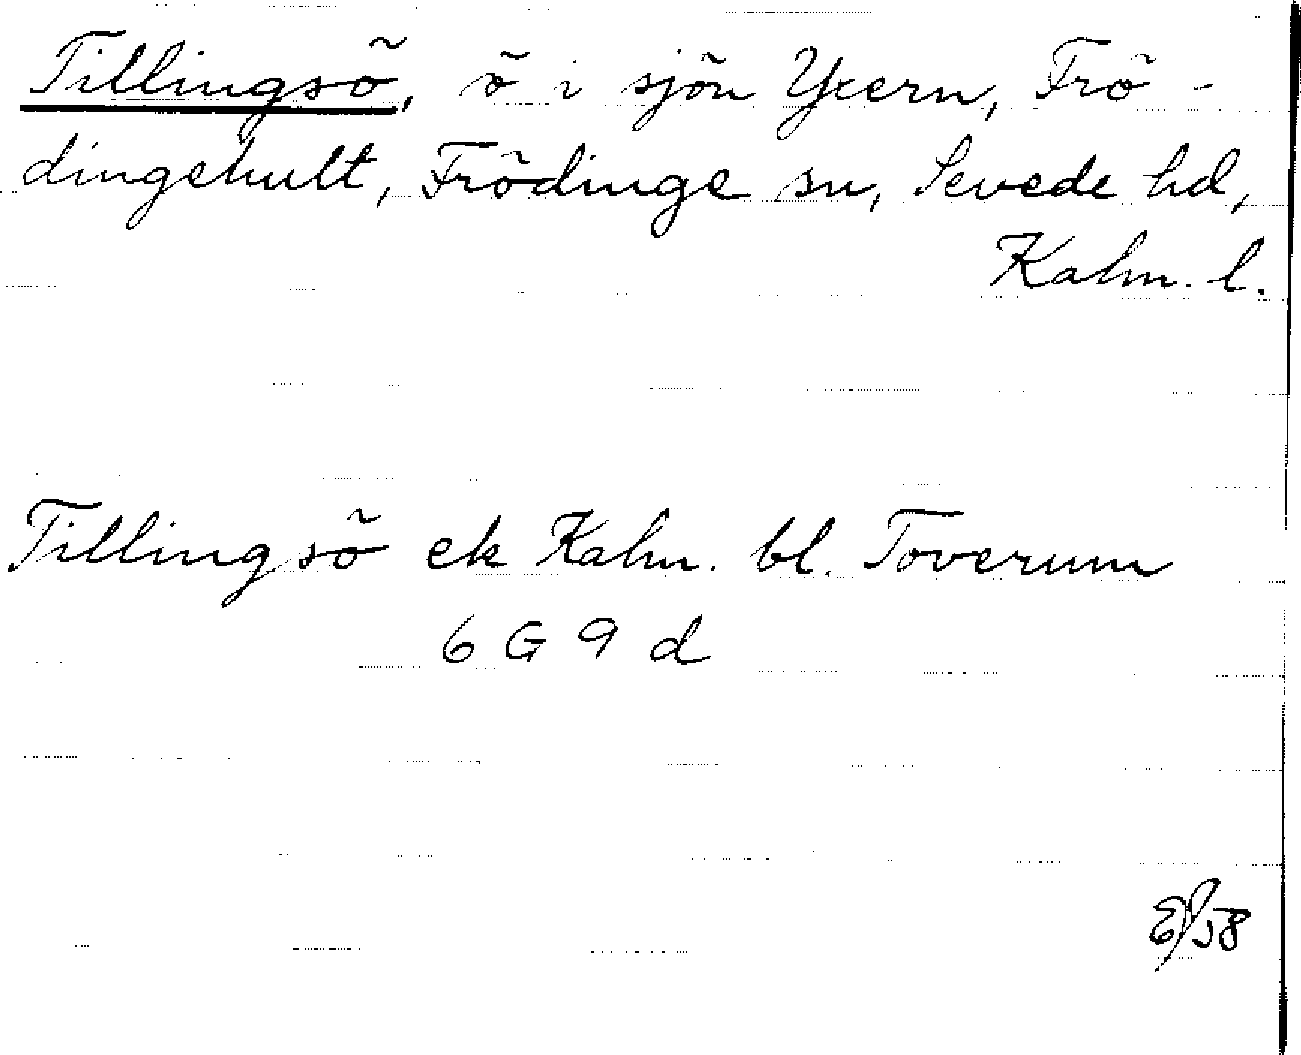 Tillingsö, ö i sjön Yxern, Frö-
dingehult, Frödinge sn, Sevede hd,
Kalm. l.
Tillingsö ek Kalm. bl. Toverum
6 G 9 d
/58